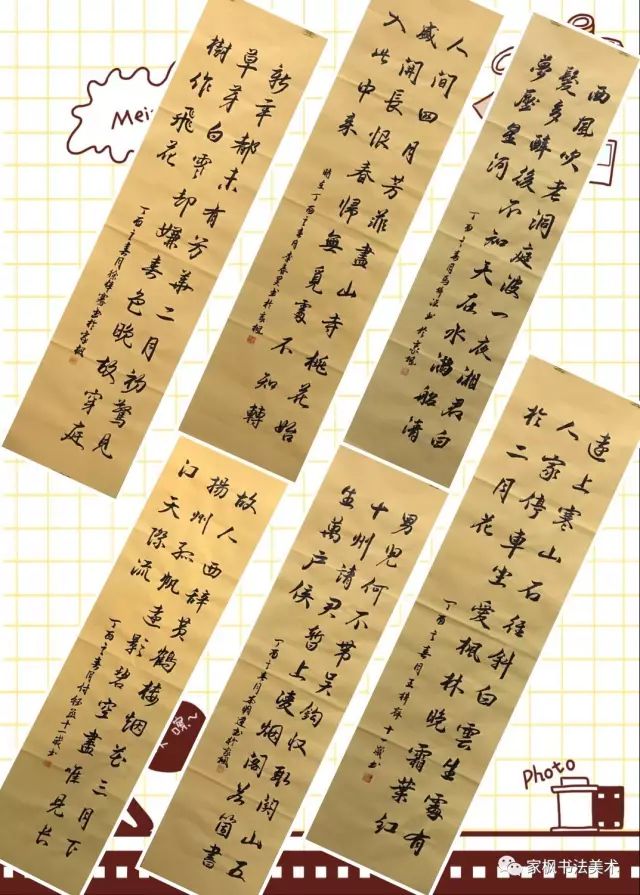 Mei
新年都未有芳華二月初驚見
草芽白雪却嫌春色晚故穿庭
樹作飛花
丁酉年春月書於家楓
人間四月芳菲盡山寺桃花始
盛開長恨春歸無覓處不知轉
入此中来
时在丁酉年春月李春昊书於家楓
西風吹老洞庭波一夜湘君白
髮多醉後不知天在水滿船清
夢壓星河
丁酉年春月馬书於家楓
故人西辞黄鶴楼烟花三月下
揚州孤帆遠影碧空盡唯見長
江天際流
丁酉年春月付十一歲书
男兒何不帶吴鈎收取關山五
十州請君暫上凌烟閣若箇書
生萬户侯
丁酉年春月书於家楓
遠上寒山石径斜白雲生處有
人家停車坐愛楓林晚霜葉红
於二月花
丁酉年春月王梓存十歲书
Photo
家枫书法美术